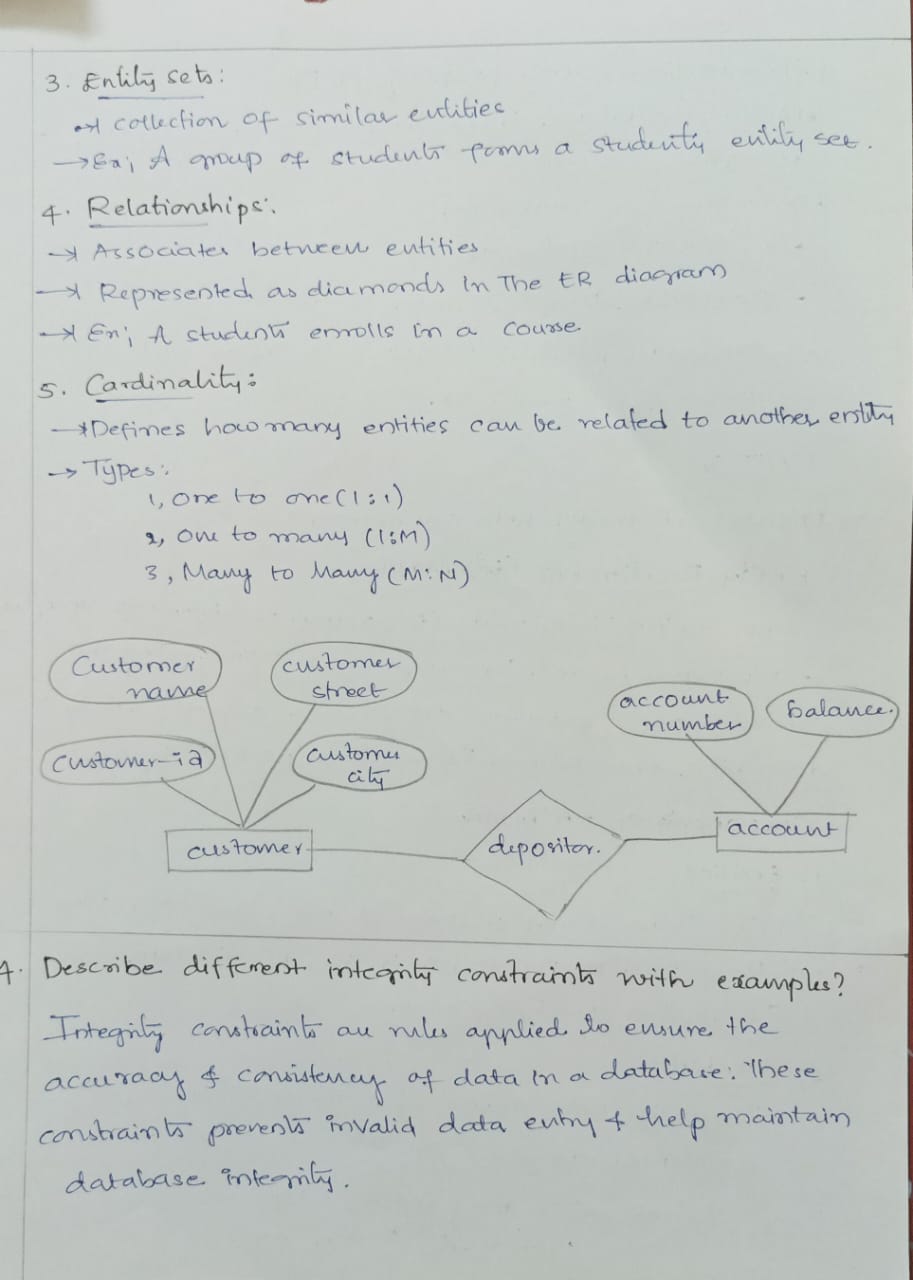 3. Entity sets:
→ collection of similar entities
→ Ex; A group of students forms a students entity set.
4. Relationships:.
→ Associates between entities
→ Represented as diamonds In The ER diagram
→ Ex; A students enrolls in a course
5. Cardinality:
→ Defines how many entities can be related to another entity
→ Types:
1, One to one (1:1)
2, One to many (1:M)
3, Many to Many (M:N)
Customer name
customer street
account number
balance.
customer-id
customer city
customer
depositor.
account
4. Describe different integrity constraints with examples?
Integrity constraints are rules applied to ensure the
accuracy & consistency of data in a database. These
constraints prevents invalid data entry & help maintain
database integrity.